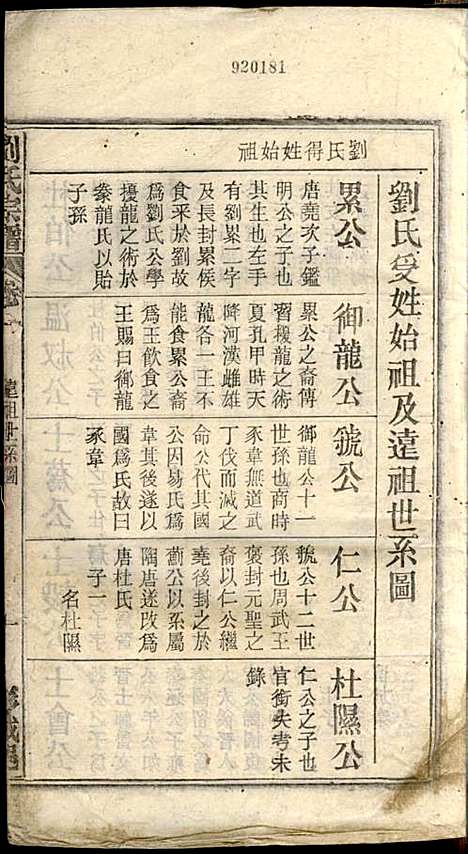 920181
劉氏得姓始祖
劉氏受姓始祖及遠祖世系圖
累公
唐堯次子鑑
明公之子也
其生也左手
有劉累二字
及長封累侯
食采於劉故
爲劉氏公學
擾龍之術於
豢龍氏以貽
子孫
御龍公
累公之裔傳
習擾龍之術
夏孔甲時天
降河漢雌雄
龍各一王不
能食累公裔
爲王飲食之
王賜曰御龍
虢公
御龍公十一
世孫也商時
豕韋無道武
丁伐而滅之
命公代其國
公因易氏爲
韋其後遂以
國爲氏故曰
豕韋
仁公
虢公十二世
孫也周武王
褒封元聖之
裔以仁公繼
堯後封之於
薊公以系屬
陶唐遂改爲
唐杜氏
子一
名杜隰
杜隰公
仁公之子也
官銜失考未
錄
劉氏宗譜
遠祖世系圖
一